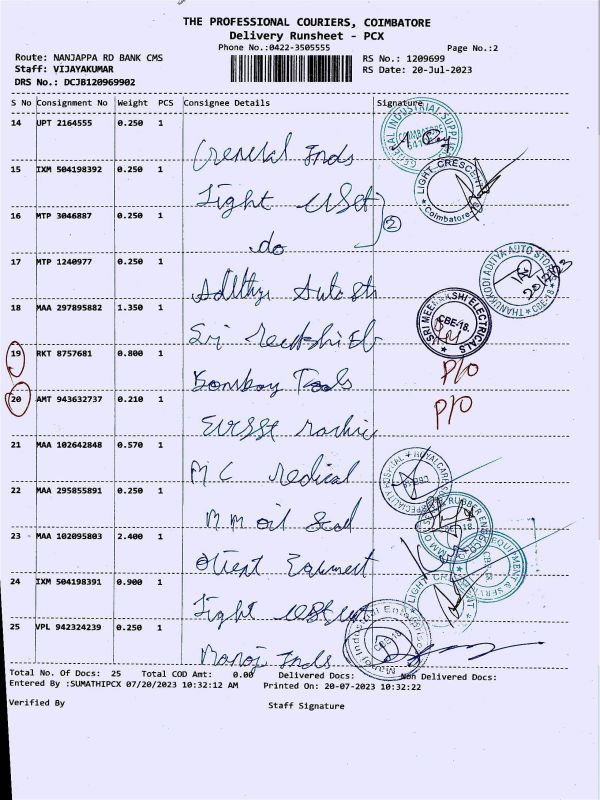 THE PROFESSIONAL COURIERS, COIMBATORE
Delivery Runsheet - PCX
Phone No.:0422-3505555 Page No.:2
Route: NANJAPPA RD BANK CMS RS No.: 1209699
Staff: VIJAYAKUMAR RS Date: 20-Jul-2023
DRS No.: DCJB120969902
S No Consignment No Weight PCS Consignee Details Signature
14 UPT 2164555 0.250 1
General Inds
15 IXM 504198392 0.250 1
Light
16 MTP 3046887 0.250 1
do
2
17 MTP 1240977 0.250 1
Adithya Auto
18 MAA 297895882 1.350 1
Sri
SRI MEENAKSHI ELECTRICALS
CBE-18.
19 RKT 8757681 0.800 1
Bombay Tools P/O
20 AMT 943632737 0.210 1
P/O
21 MAA 102642848 0.570 1
M C Medical
22 MAA 295855891 0.250 1
M M oil Seal
23 MAA 102095803 2.400 1
24 IXM 504198391 0.900 1
Light
25 VPL 942324239 0.250 1
Manoj Inds.
Total No. Of Docs: 25 Total COD Amt: 0.00 Delivered Docs: Non Delivered Docs:
Entered By :SUMATHIPCX 07/20/2023 10:32:12 AM Printed On: 20-07-2023 10:32:22
Verified By Staff Signature